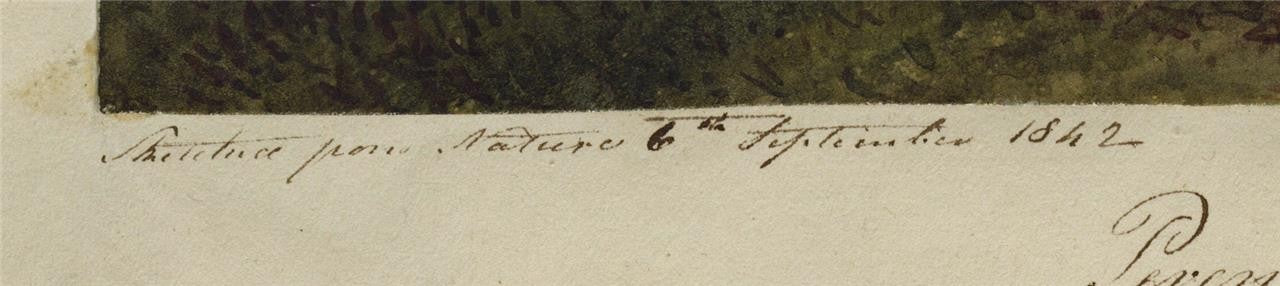 Sketched from Nature 6th September 1842